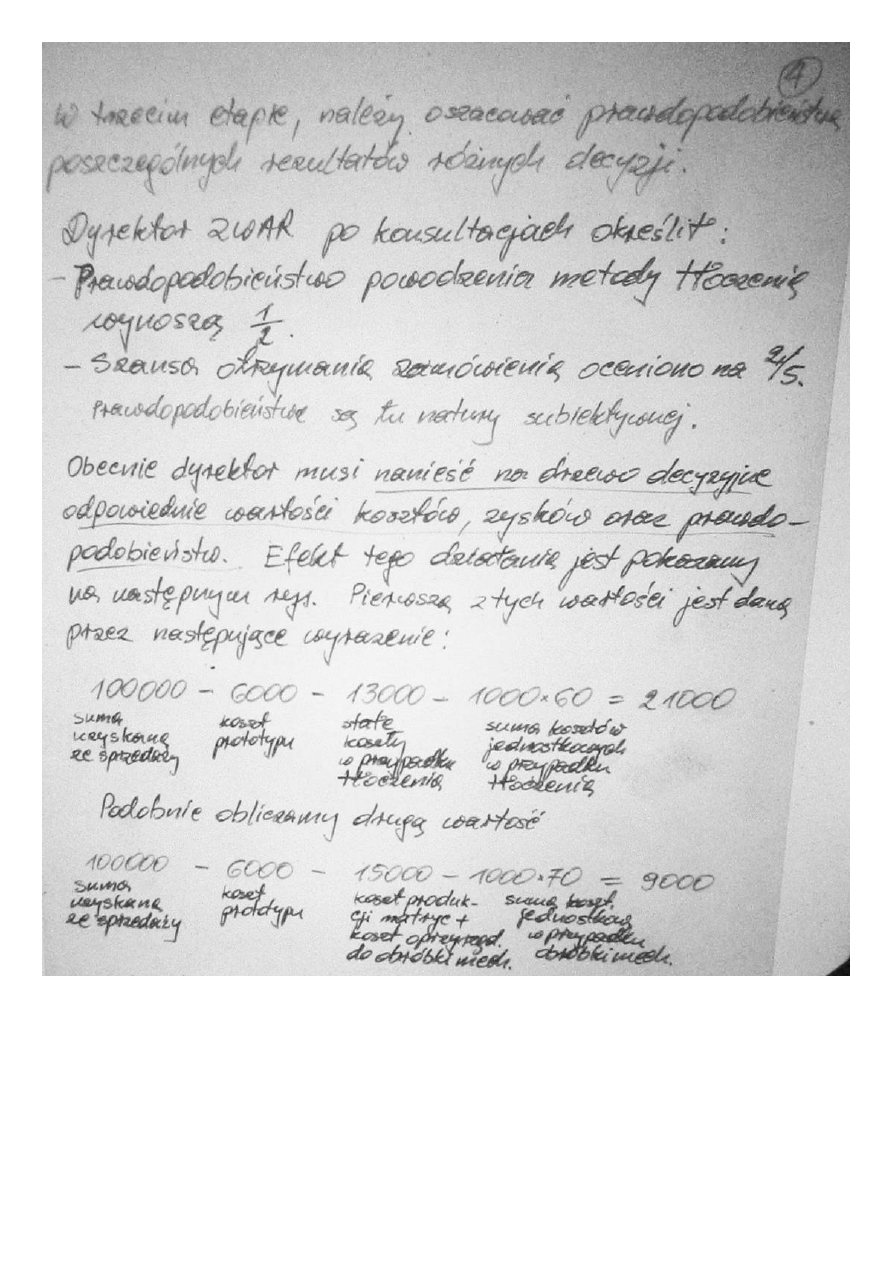 4
W trzecim etapie, należy oszacować prawdopodobieństwa
poszczególnych rezultatów różnych decyzji.
Dyrektor ZWAR po konsultacjach określił:
- Prawdopodobieństwo powodzenia metody tłoczenia
wynoszą 1/2.
- Szansa otrzymania zamówienia oceniono na 2/5.
Prawdopodobieństwa są tu natury subiektywnej.
Obecnie dyrektor musi nanieść na drzewo decyzyjne
odpowiednie wartości kosztów, zysków oraz prawdo-
podobieństw. Efekt tego działania jest pokazany
na następnym rys. Pierwsza z tych wartości jest dana
przez następujące wyrażenie:
100000 - 6000 - 13000 - 1000·60 = 21000
suma koszt stałe suma kosztów
uzyskana prototypu koszty jednostkowych
ze sprzedaży w przypadku w przypadku
tłoczenia tłoczenia
Podobnie obliczamy drugą wartość
100000 - 6000 - 15000 - 1000·70 = 9000
suma koszt koszt produk- suma koszt.
uzyskana prototypu cji matryc + jednostkow.
ze sprzedaży koszt oprzyrząd. w przypadku
do obróbki mech. obróbki mech.